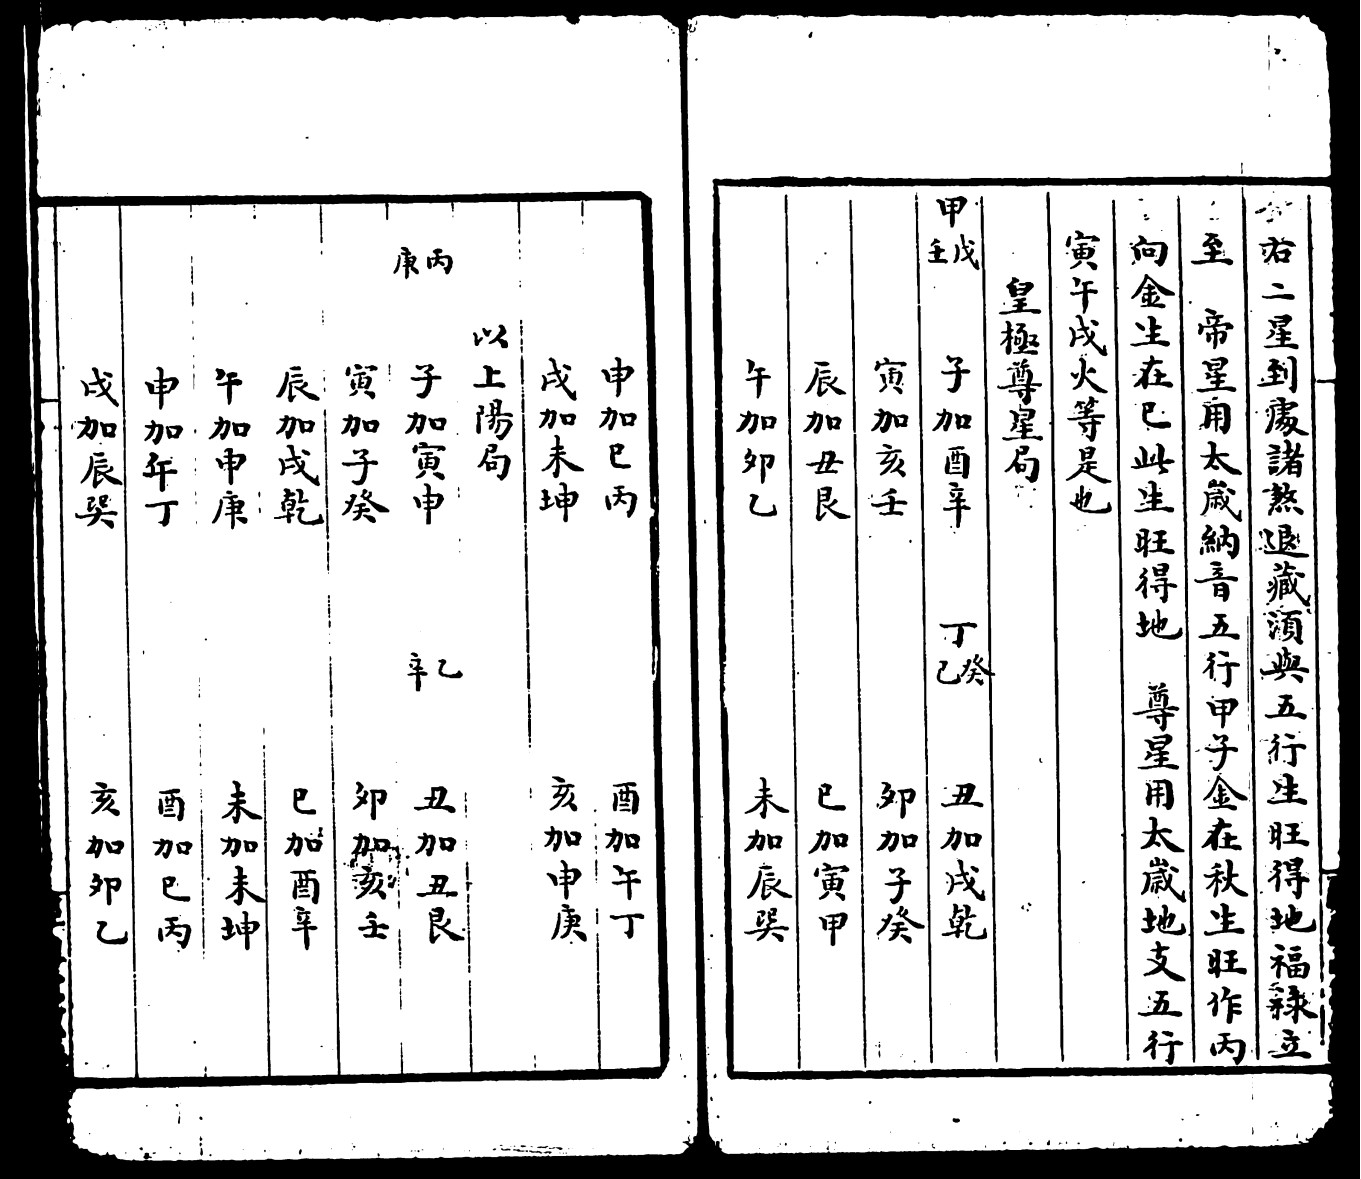 右二星到處諸煞退藏須與五行生旺得地福祿立
至　帝星用太歲納音五行甲子金在秋生旺作丙
向金生在巳此生旺得地　尊星用太歲地支五行
寅午戌火等是也
皇極尊星局
甲戊壬　子加酉辛　丁癸己　丑加戌乾
寅加亥壬　卯加子癸
辰加丑艮　巳加寅甲
午加卯乙　未加辰巽
申加巳丙　酉加午丁
戌加未坤　亥加申庚
以上陽局
丙庚　子加寅申　乙辛　丑加丑艮
寅加子癸　卯加亥壬
辰加戌乾　巳加酉辛
午加申庚　未加未坤
申加午丁　酉加巳丙
戌加辰巽　亥加卯乙